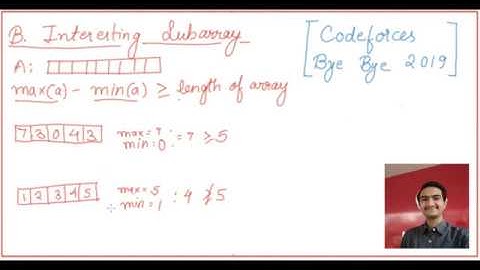 B. Interesting Subarray
[Codeforces
Bye Bye 2019]
A:
max(a) - min(a) ≥ length of array
7 3 0 4 3
max = 7
min = 0 : = 7 ≥ 5
1 2 3 4 5
max = 5
min = 1 : 4 ≱ 5